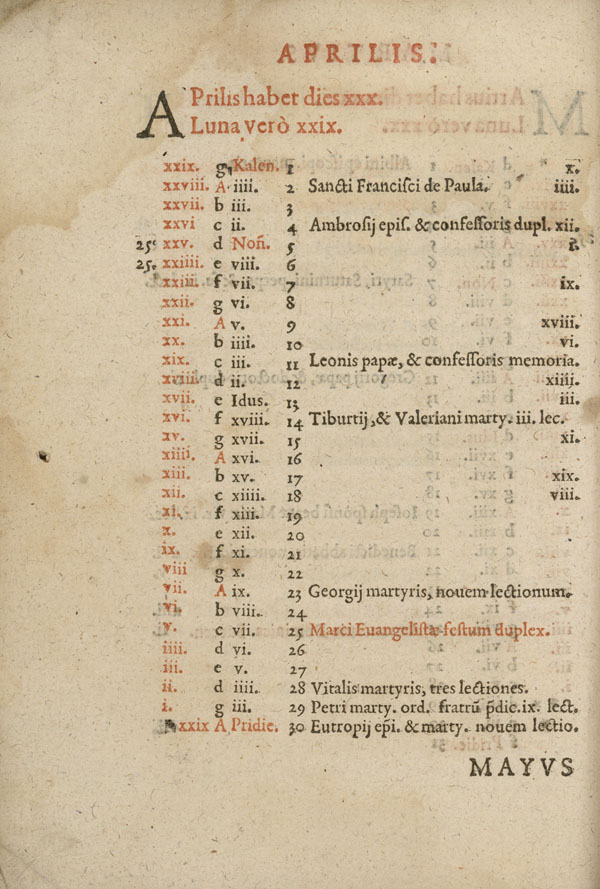 APRILIS.
APrilis habet dies xxx.
Luna verò xxix.
xxix. g Kalen. 1 x.
xxviii. A iiii. 2 Sancti Francisci de Paula. iiii.
xxvii. b iii. 3
xxvi c ii. 4 Ambrosij epis. & confessoris dupl. xii.
25. xxv. d Noñ. 5 i.
25. xxiiii. e viii. 6
xxiii. f vii. 7 ix.
xxii. g vi. 8
xxi. A v. 9 xviii.
xx. b iiii. 10 vi.
xix. c iii. 11 Leonis papæ, & confessoris memoria.
xviii. d ii. 12 xiiii.
xvii. e Idus. 13 iii.
xvi. f xviii. 14 Tiburtij, & Valeriani marty. iii. lec.
xv. g xvii. 15 xi.
xiiii. A xvi. 16
xiii. b xv. 17 xix.
xii. c xiiii. 18 viii.
xi. f xiii. 19
x. e xii. 20
ix. f xi. 21
viii g x. 22
vii. A ix. 23 Georgij martyris, novem lectionum.
vi. b viii. 24
v. c vii. 25 Marci Euangelistæ festum duplex.
iiii. d vi. 26
iii. e v. 27
ii. d iiii. 28 Vitalis martyris, tres lectiones.
i. g iii. 29 Petri marty. ord. fratrũ p̃dic. ix. lect.
xxix A Pridie. 30 Eutropij ep̃i. & marty. nouem lectio.
MAYVS